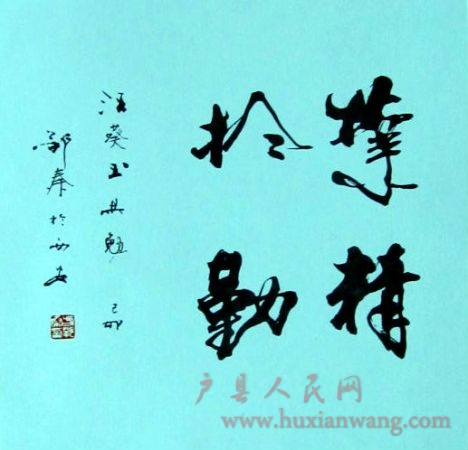 業精
於勤
汪葵玉共勉 己卯
於西安
户县人民网
www.huxianwang.com